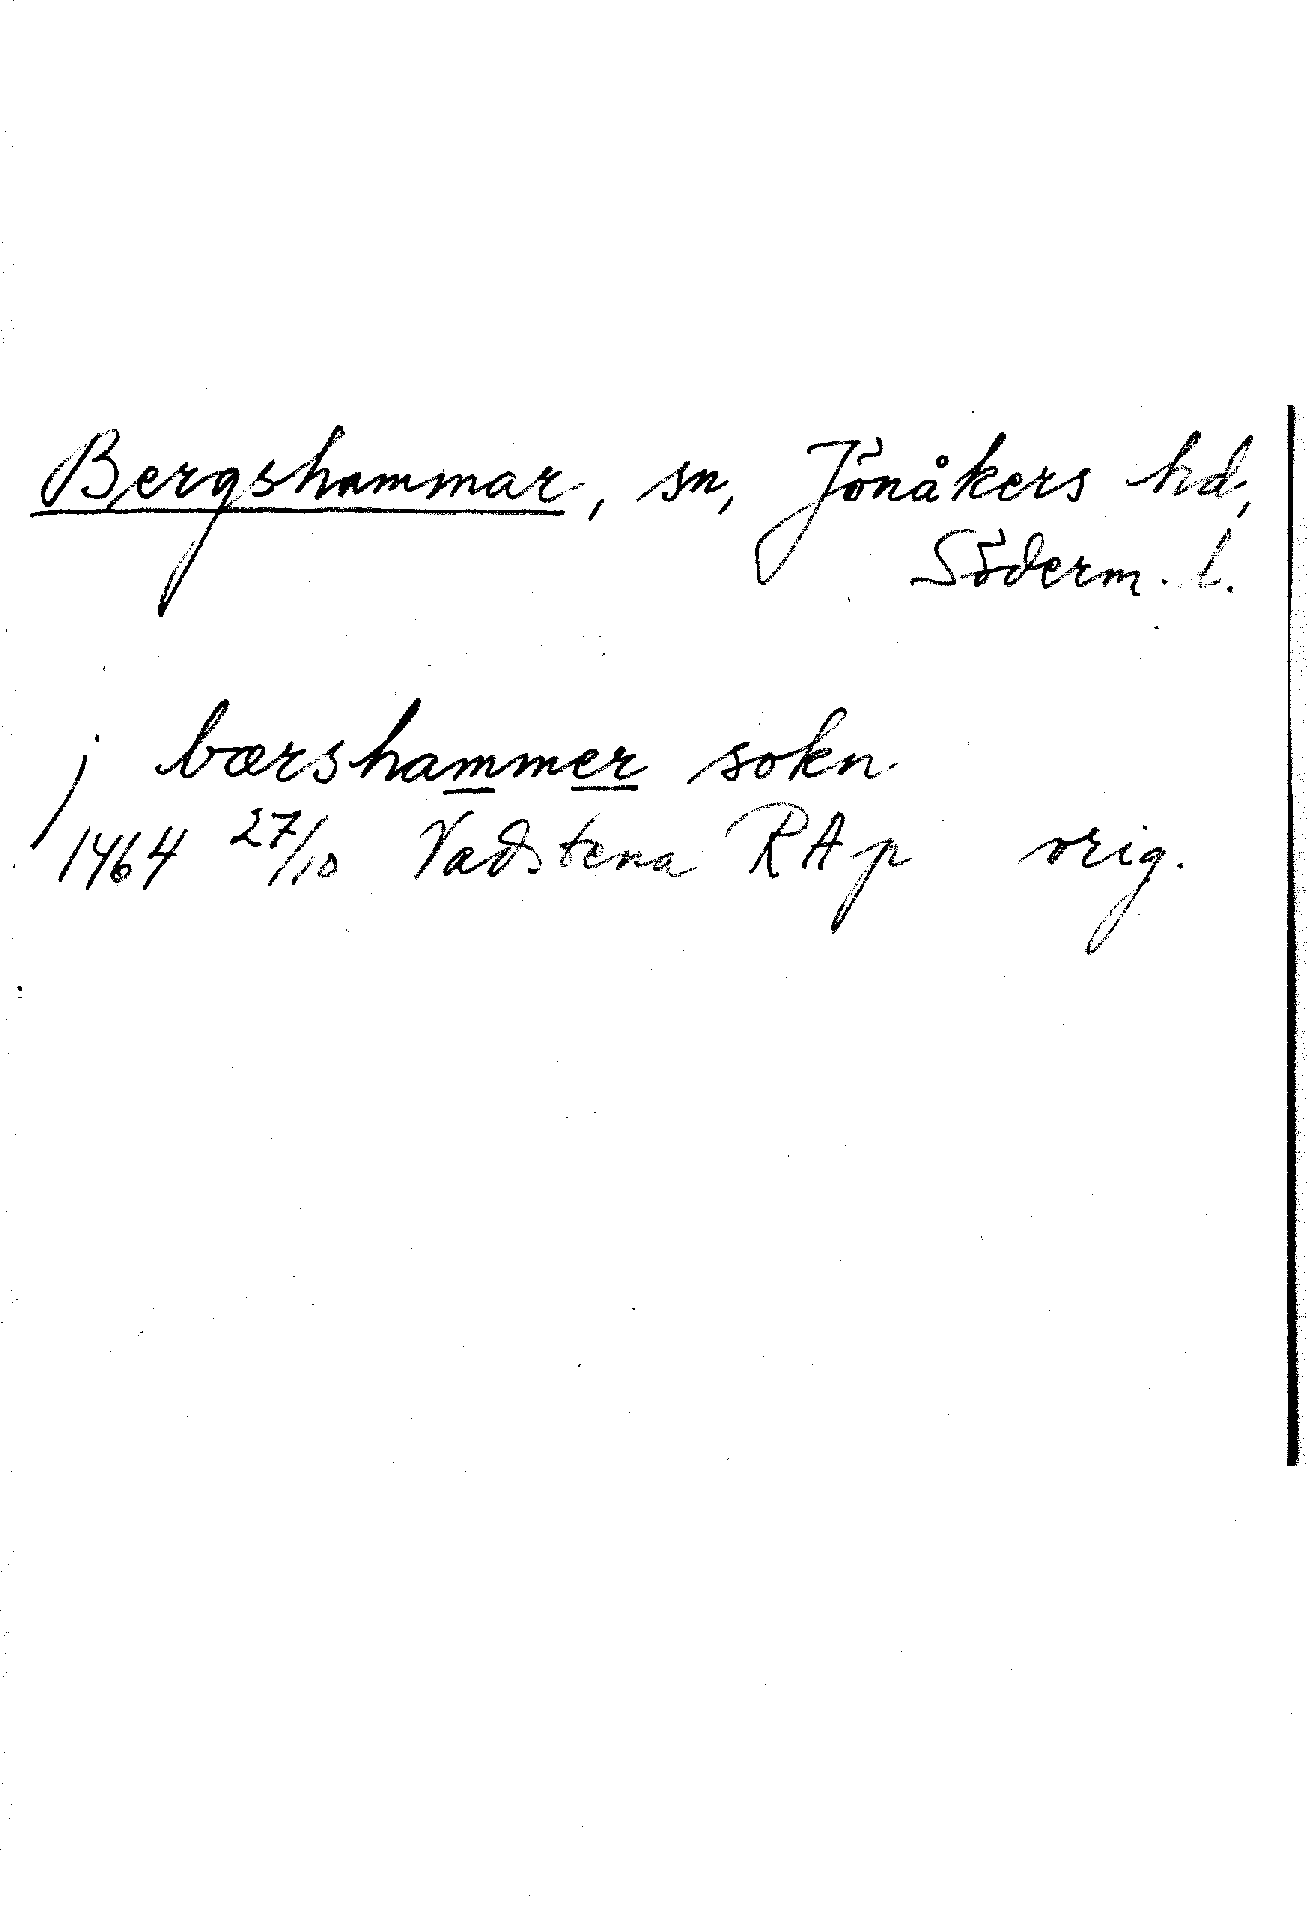 Bergshammar, sn, Jönåkers hd,
Söderm. l.
j bærshammer sokn
1464 27/10 Vadstena RAp orig.